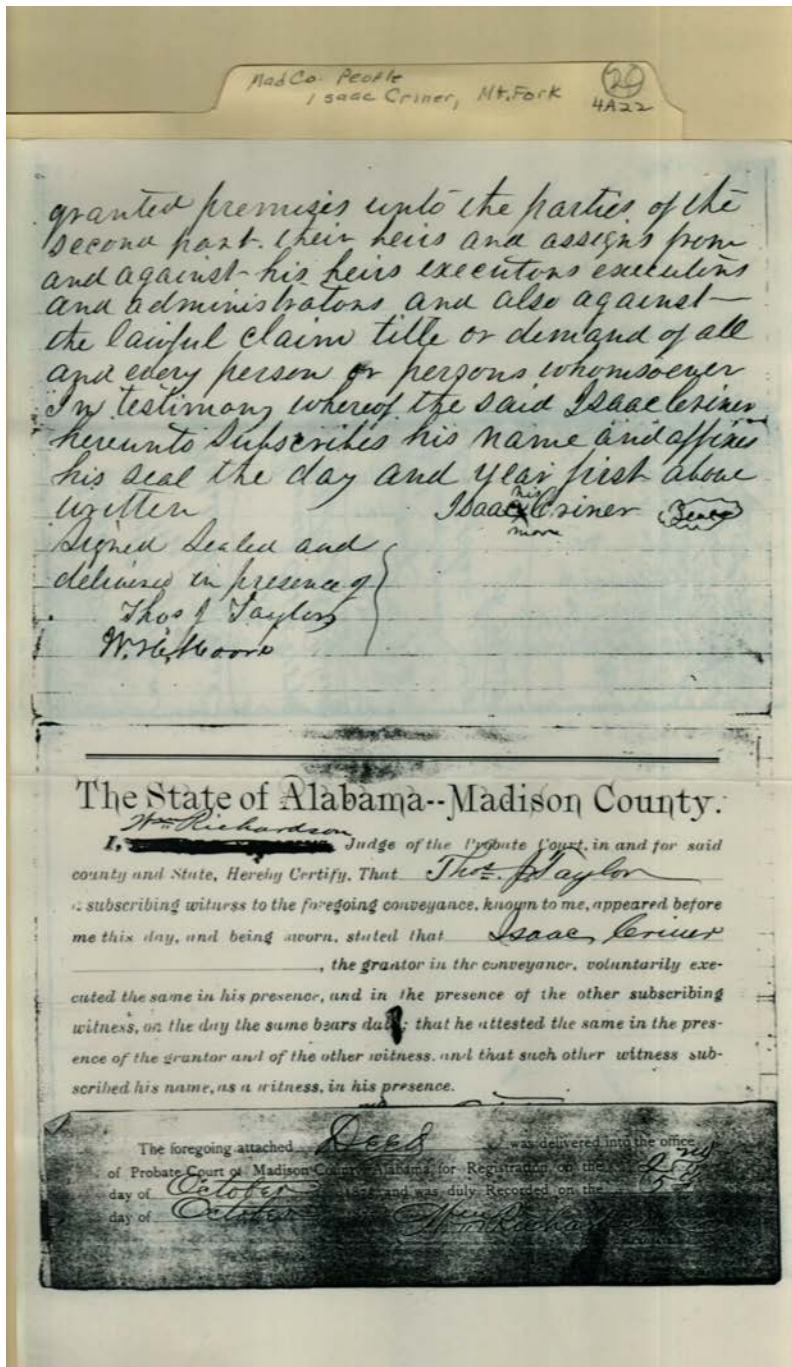 MadCo. People
Isaac Criner, Mt. Fork
20
4A22
granted premises unto the parties of the
second part their heirs and assigns from
and against his heirs executors executors
and administrators and also against
the lawful claim title or demand of all
and every person or persons whomsoever
In testimony whereof the said Isaac Criner
hereunto subscribes his name and affixes
his seal the day and year first above
written Isaac his Criner Seal
mark
Signed Sealed and
delivered in presence of
Thos J Taylor
W. H. Moore
The State of Alabama--Madison County.
Wm Richardson
I, Judge of the Probate Court, in and for said
county and State, Hereby Certify, That Thos. J. Taylor
a subscribing witness to the foregoing conveyance, known to me, appeared before
me this day, and being sworn, stated that Isaac Criner
, the grantor in the conveyance, voluntarily exe-
cuted the same in his presence, and in the presence of the other subscribing
witness, on the day the same bears date; that he attested the same in the pres-
ence of the grantor and of the other witness, and that such other witness sub-
scribed his name, as a witness, in his presence.
The foregoing attached Deed was delivered into the office
of Probate Court of Madison County, Alabama, for Registration on the 2nd
day of October and was duly Recorded on the 5
day of October Wm Richardson